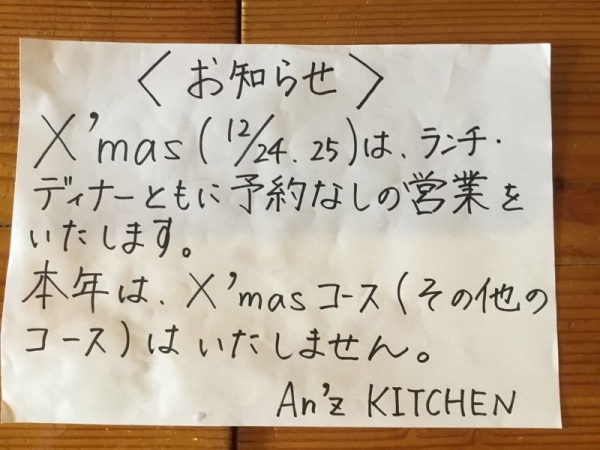 〈お知らせ〉
X'mas(12/24.25)は、ランチ・
ディナーともに予約なしの営業を
いたします。
本年は、X'masコース(その他の
コース)はいたしません。
An'z KITCHEN